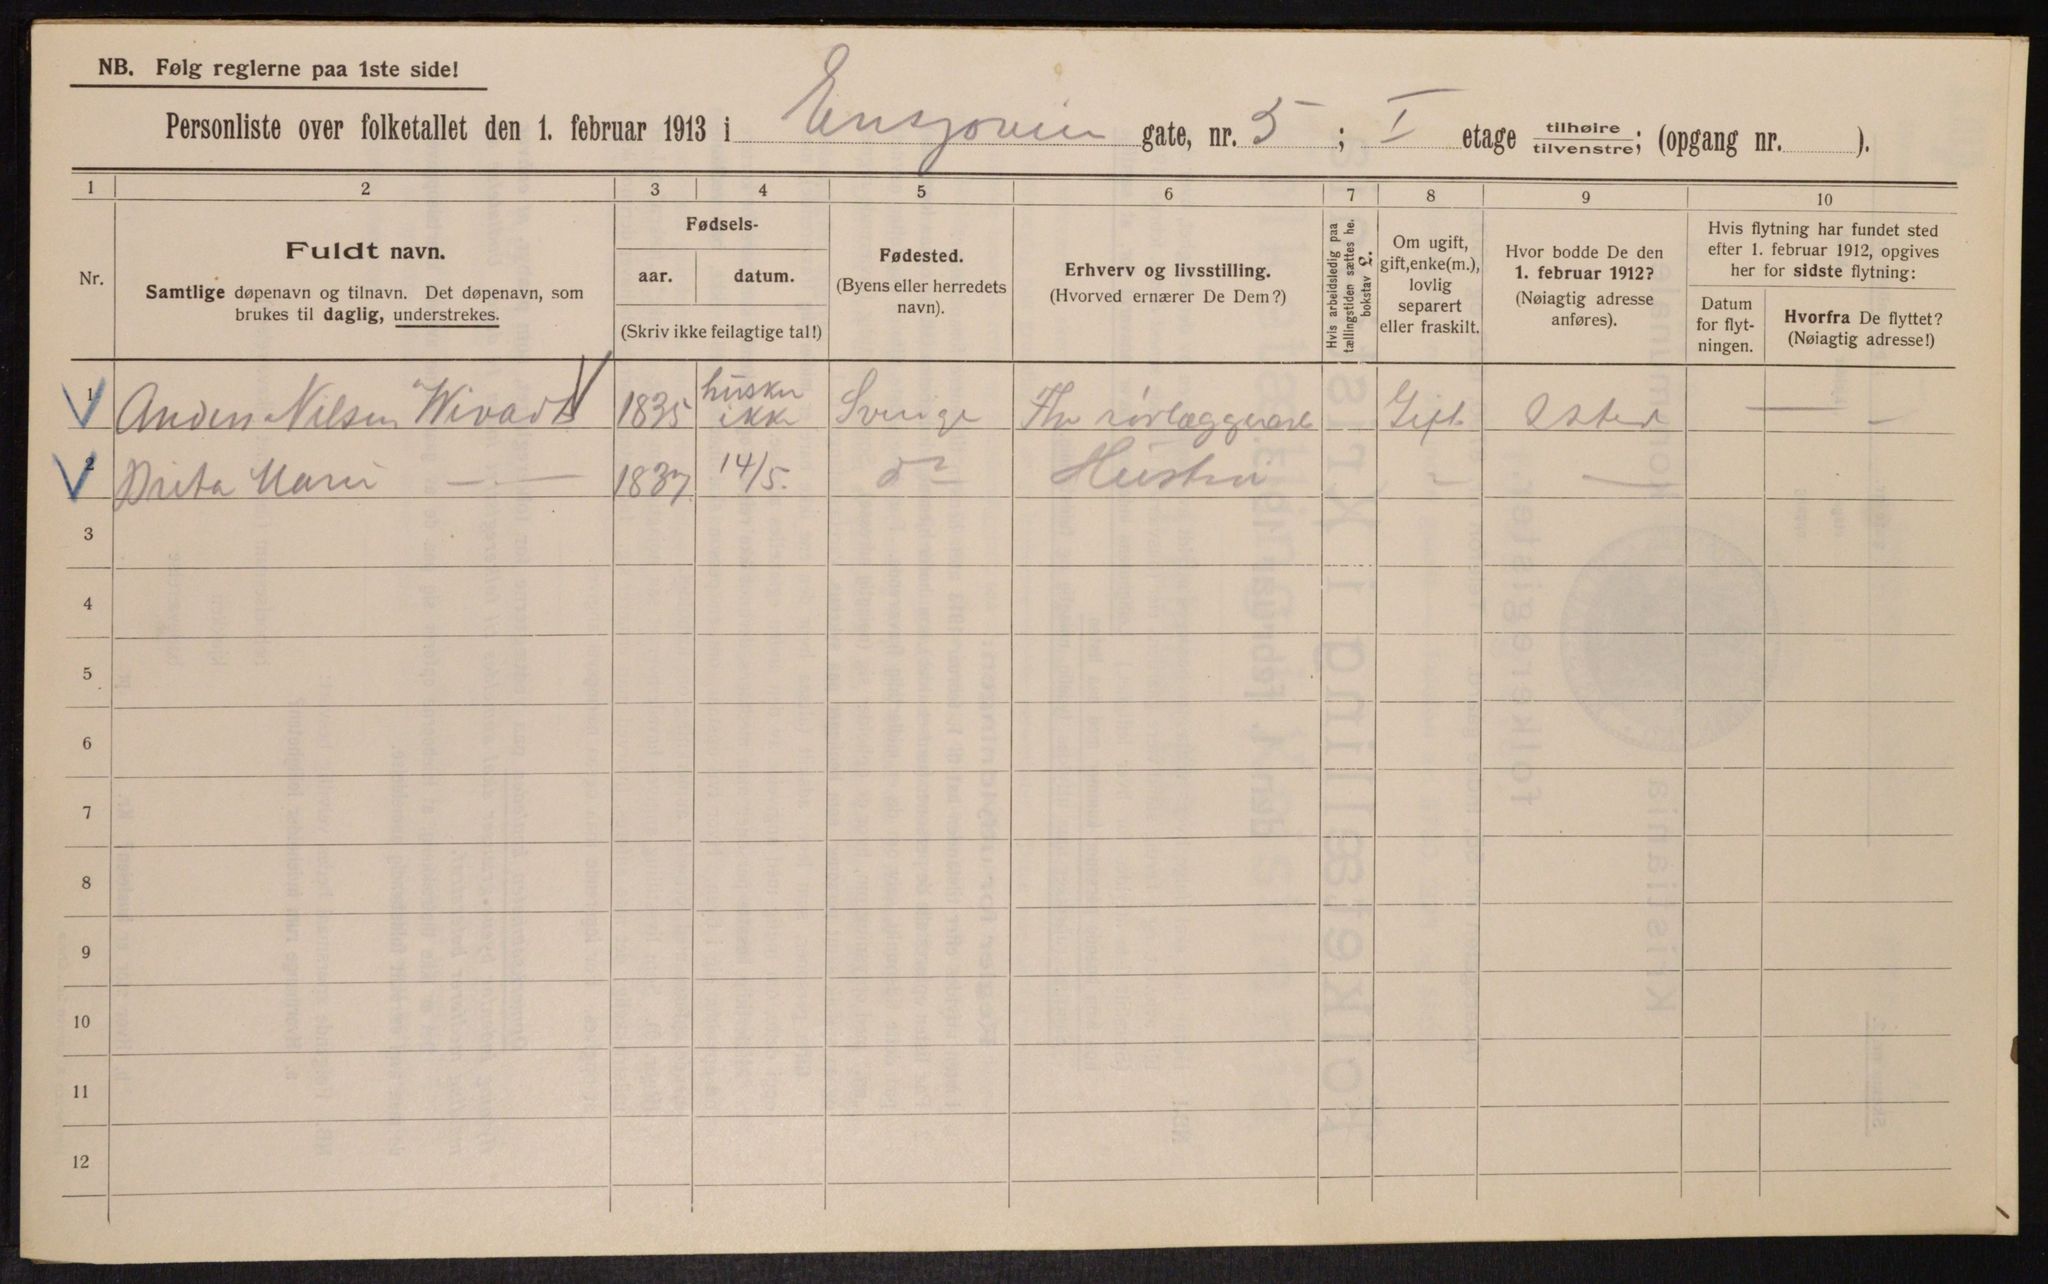 NB. Følg reglerne paa 1ste side!
Personliste over folketallet den 1. februar 1913 i Ensjøvein gate, nr. 5 ; I etage tilhøire tilvenstre; (opgang nr. ).
1 2 3 4 5 6 7 8 9 10
Nr.
Fuldt navn.
Samtlige døpenavn og tilnavn. Det døpenavn, som
brukes til daglig, understrekes.
Fødsels-
aar. datum.
(Skriv ikke feilagtige tal!)
Fødested.
(Byens eller herredets
navn).
Erhverv og livsstilling.
(Hvorved ernærer De Dem?)
Hvis arbeidsledig paa
tællingstiden sættes her
bokstav L.
Om ugift,
gift, enke(m.),
lovlig
separert
eller fraskilt.
Hvor bodde De den
1. februar 1912?
(Nøiagtig adresse
anføres).
Hvis flytning har fundet sted
efter 1. februar 1912, opgives
her for sidste flytning:
Datum
for flyt-
ningen.
Hvorfra De flyttet?
(Nøiagtig adresse!)
1 Anders Nilsen 1835 husker ikke Sverige Gift
2 Brita Marie — 1837 14/5. do Hustru
3
4
5
6
7
8
9
10
11
12